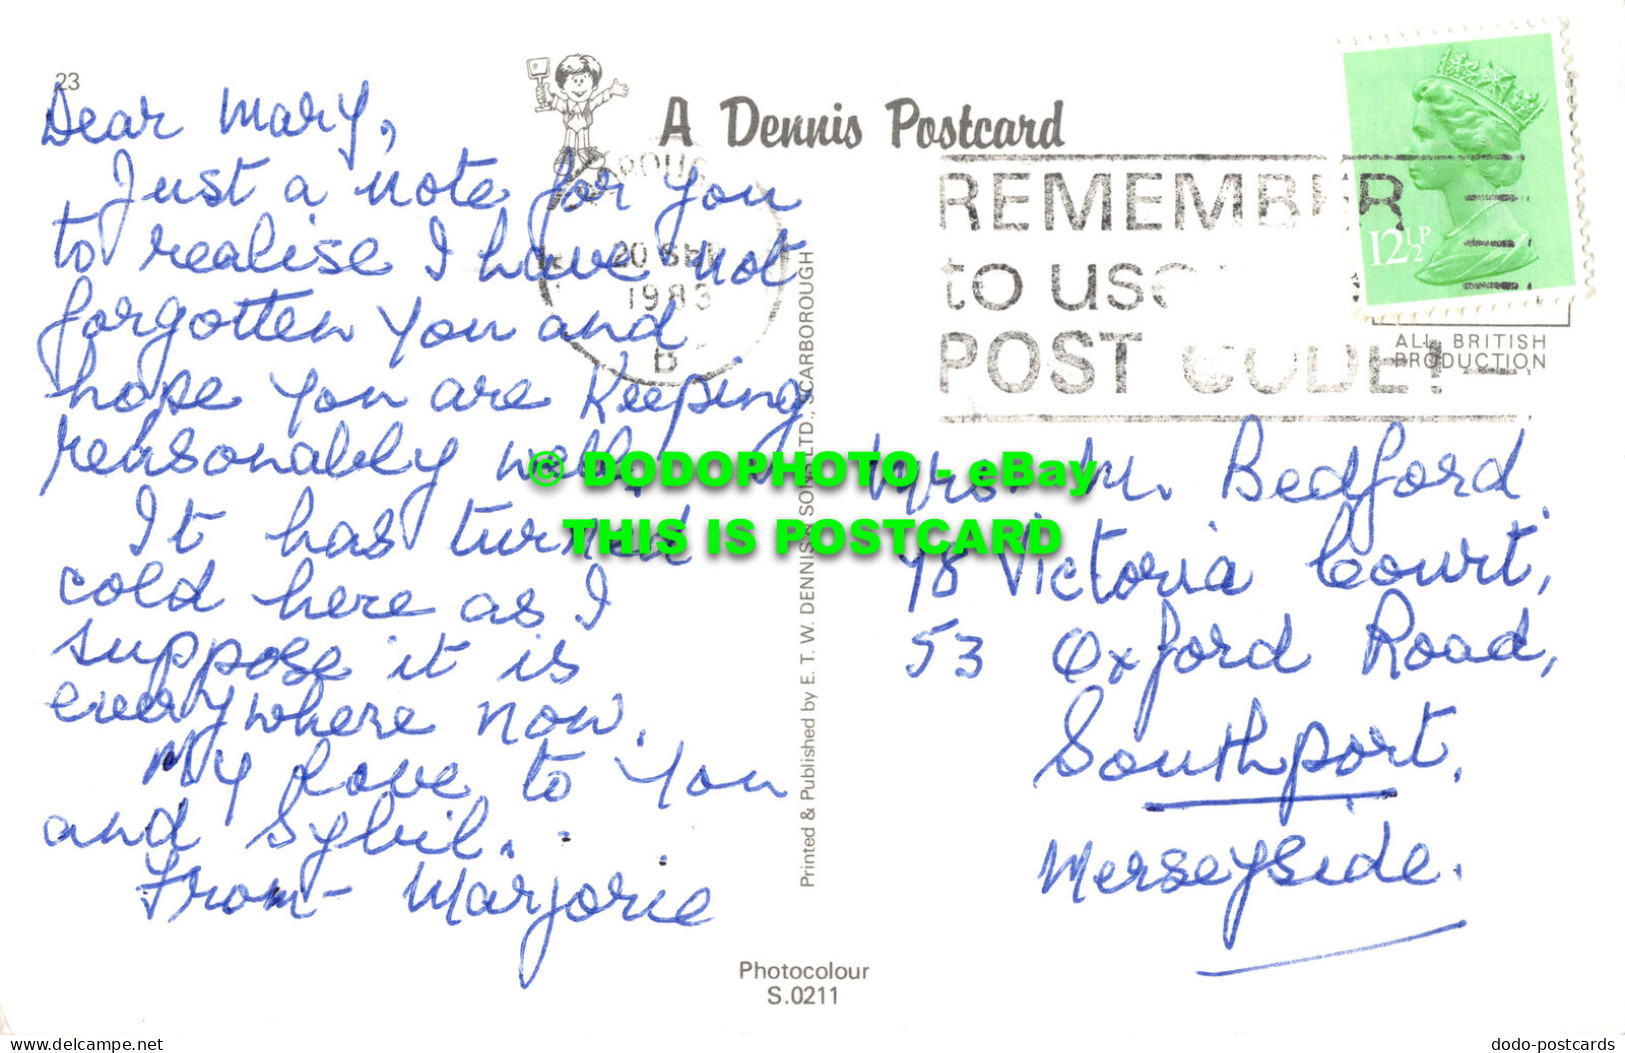 23
Dear Mary,
Just a note for you
to realise I have not
forgotten you and
hope you are keeping
reasonably well.
It has turned
cold here as I
suppose it is
everywhere now.
My love to you
and Sybil.
From - Marjorie
A Dennis Postcard
20 SEP
1983
B
REMEMBER
to use
POST CODE!
12½P
ALL BRITISH
PRODUCTION
Printed & Published by E. T. W. DENNIS & SONS LTD., SCARBOROUGH
© DODOPHOTO - eBay
THIS IS POSTCARD
Mrs. M. Bedford,
48 Victoria Court,
53 Oxford Road,
Southport,
Merseyside.
Photocolour
S.0211
www.delcampe.net
dodo-postcards